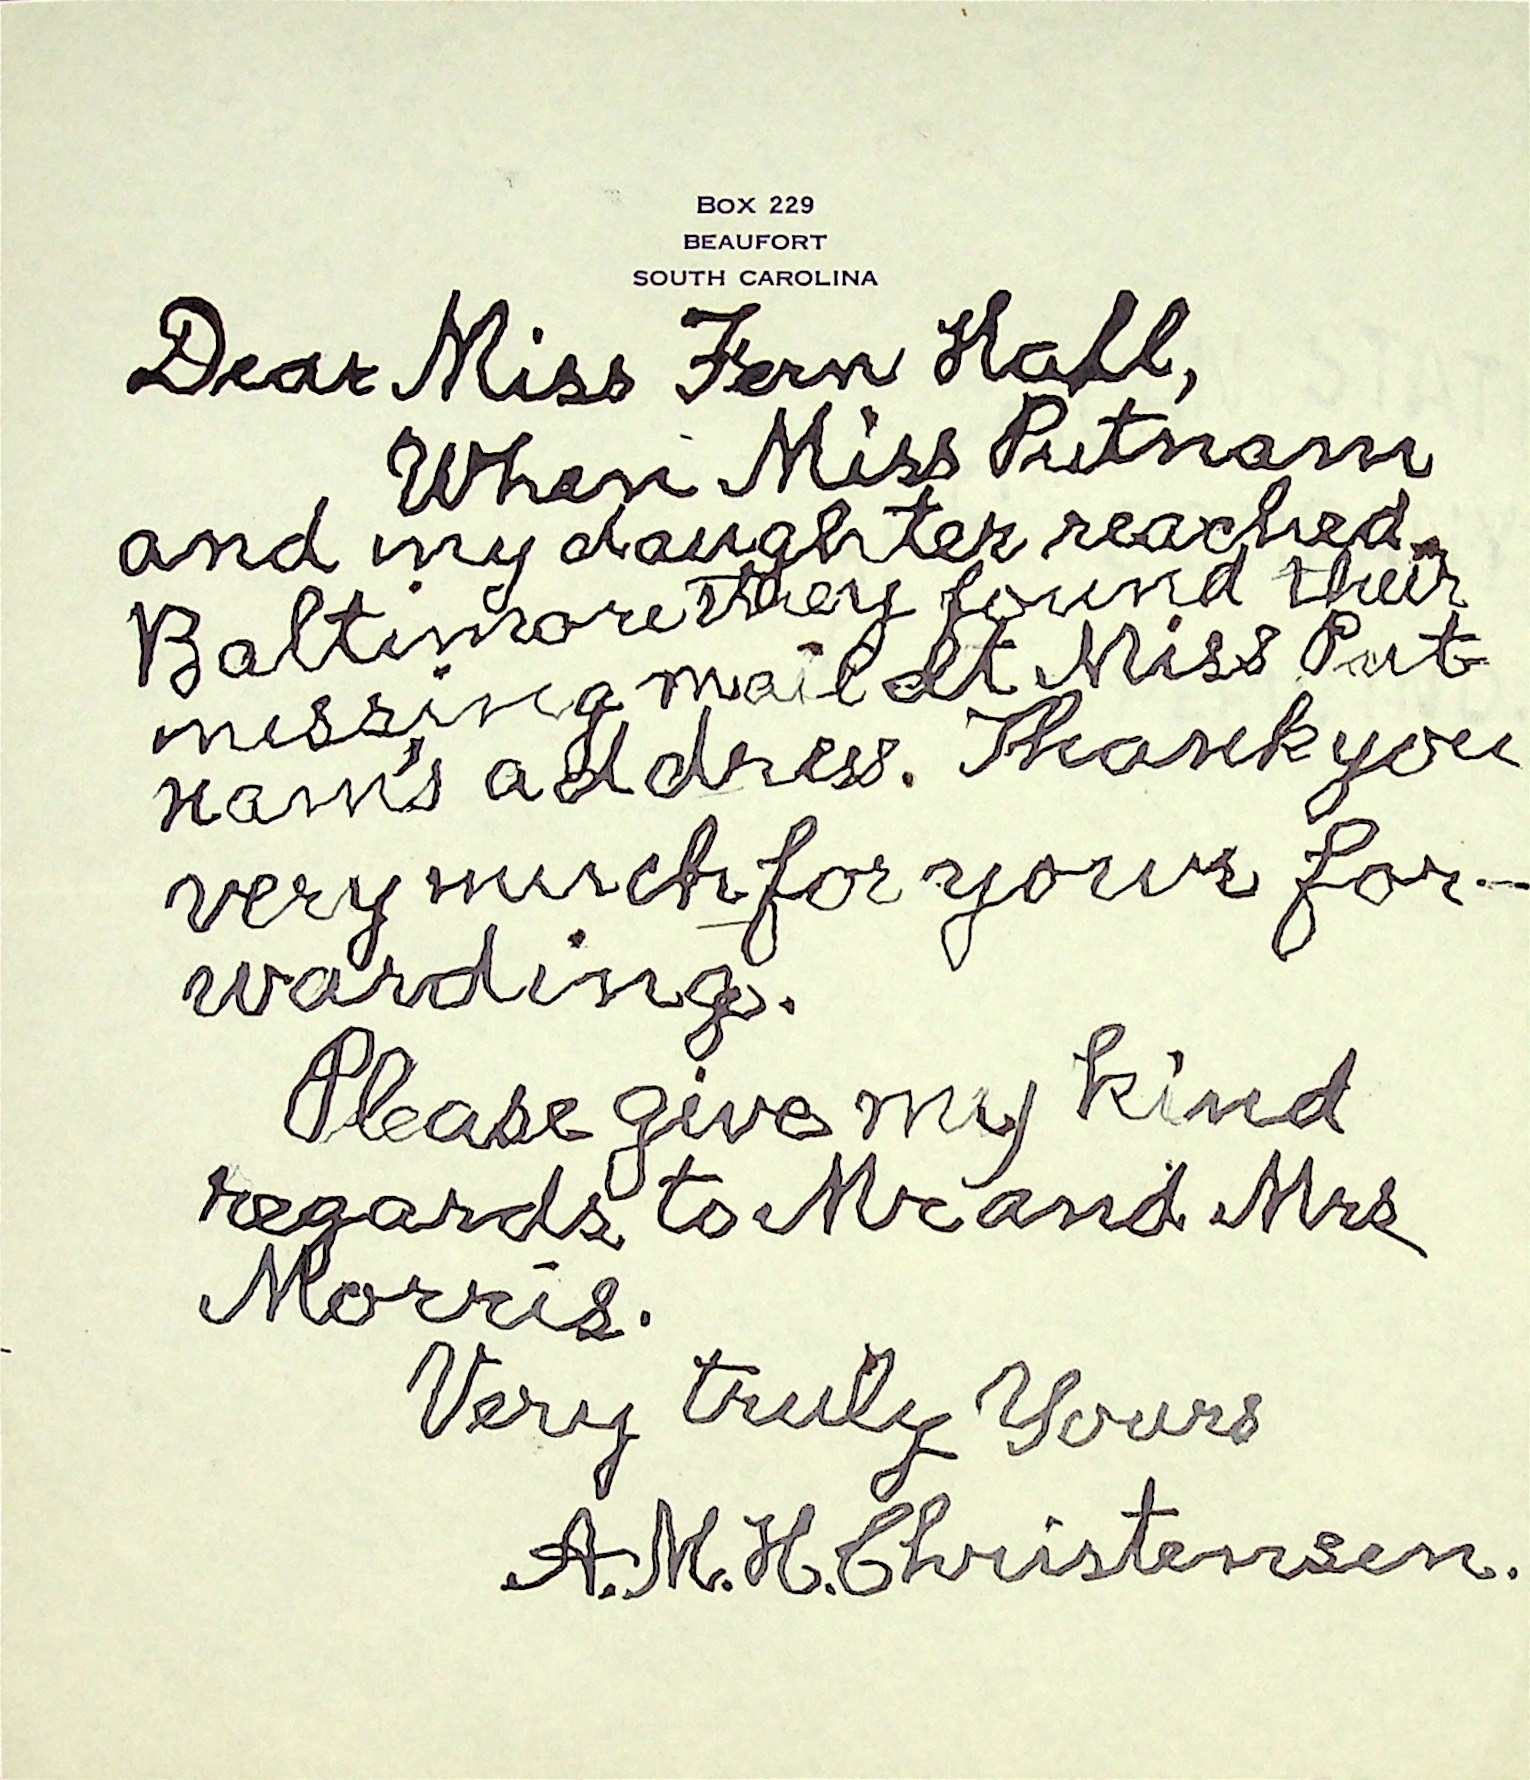 BOX 229
BEAUFORT
SOUTH CAROLINA
Dear Miss Fern Hall,
When Miss Putnam
and my daughter reached
Baltimore they found their
missing mail at Miss Put
nam's address. Thank you
very much for your for-
warding.
Please give my kind
regards to Mr and Mrs
Morris.
Very truly Yours
A.M.H. Christensen.